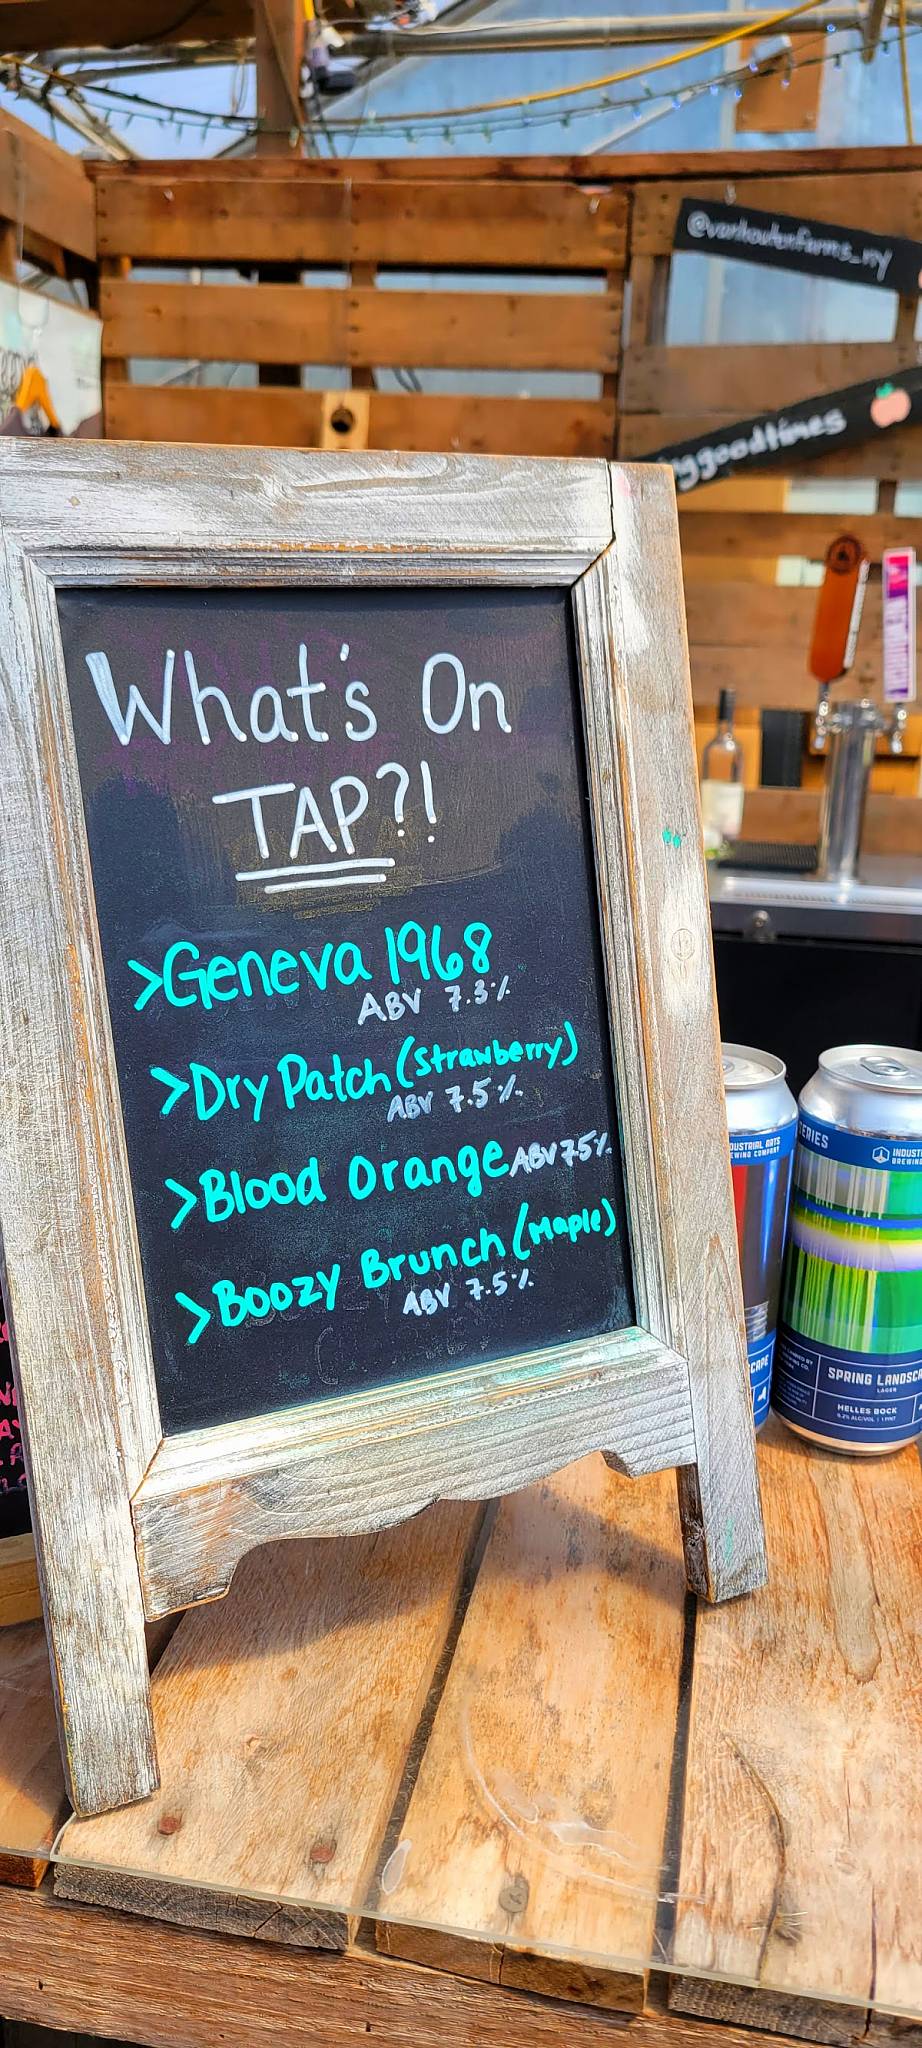 @vanhoutenfarms_ny
goodtimes
What's On
TAP?!
>Geneva 1968
ABV 7.3%
>Dry Patch (Strawberry)
ABV 7.5%
>Blood Orange ABV 7.5%
>Boozy Brunch (Maple)
ABV 7.5%
DUSTRIAL ARTS
EWING COMPANY
SERIES
INDUST
BREWIN
CAPE
SPRING LANDSCA
LAGER
HELLES BOCK
6.2% ALC/VOL | 1 PINT